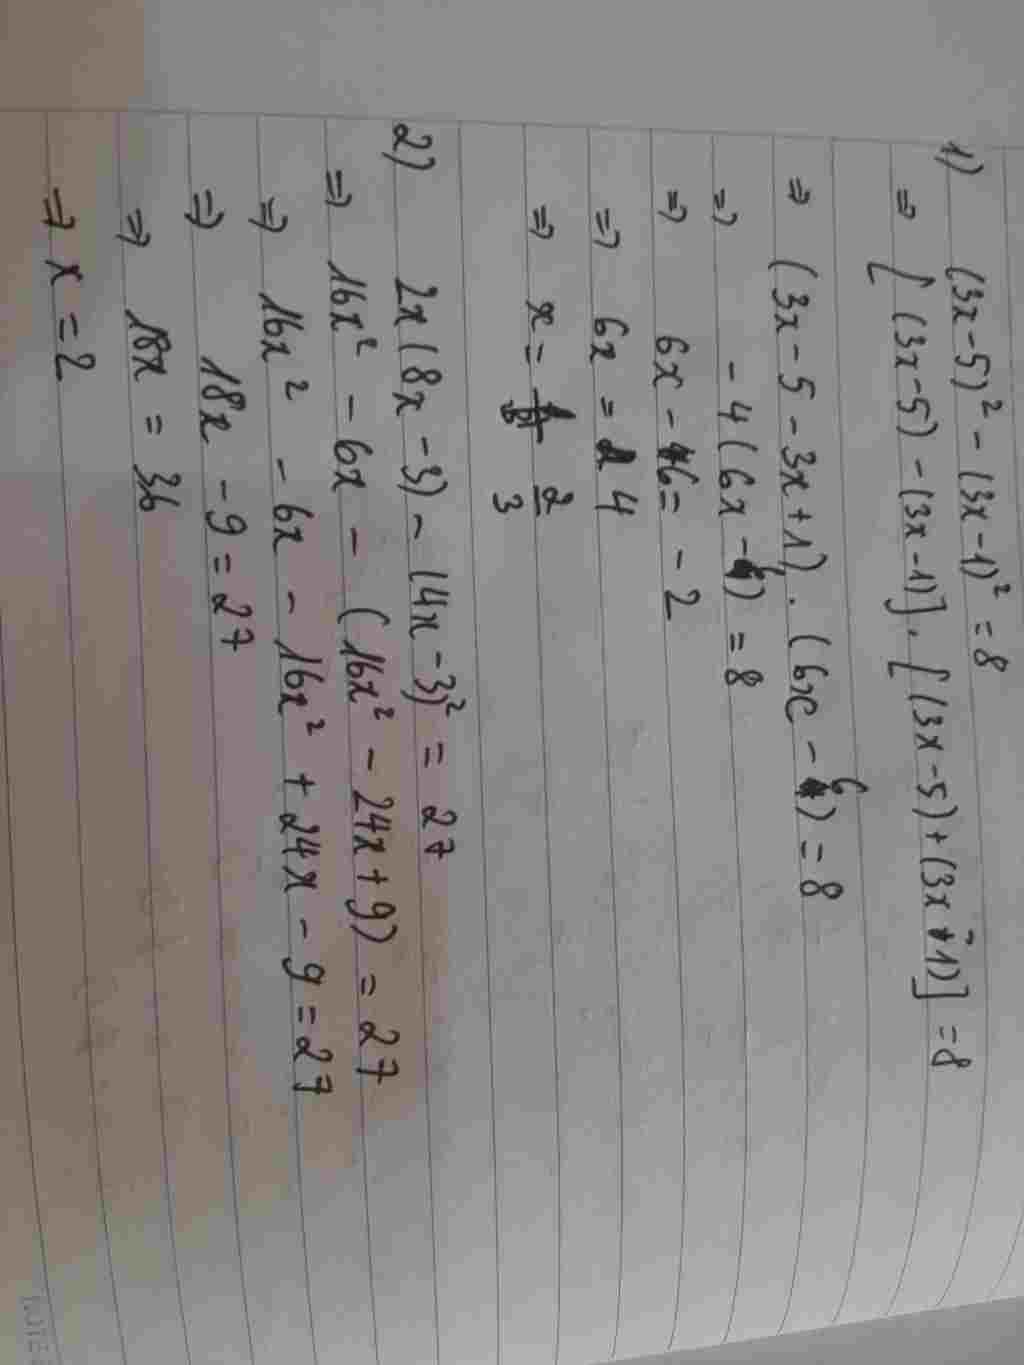 1) (3x-5)² - (3x-1)² = 8
⇒ [(3x-5) - (3x-1)] . [(3x-5) + (3x-1)] = 8
⇒ (3x - 5 - 3x + 1) . (6x - 6) = 8
⇒ - 4 (6x - 6) = 8
⇒ 6x - 6 = - 2
⇒ 6x = 4
⇒ x = 2/3
2) 2x (8x - 3) - (4x - 3)² = 27
⇒ 16x² - 6x - (16x² - 24x + 9) = 27
⇒ 16x² - 6x - 16x² + 24x - 9 = 27
⇒ 18x - 9 = 27
⇒ 18x = 36
⇒ x = 2